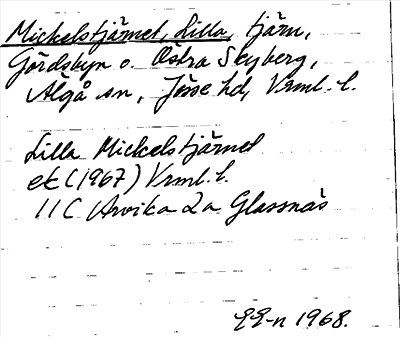 Mickelstjärnet, Lilla, tjärn,
Gördsbyn o. Östra Skyberg,
Älgå sn, Jösse hd, Vrml. l.
Lilla Mickelstjärnet
ek (1967) Vrml. l.
11 C Arvika 2a Glassnäs
1968.